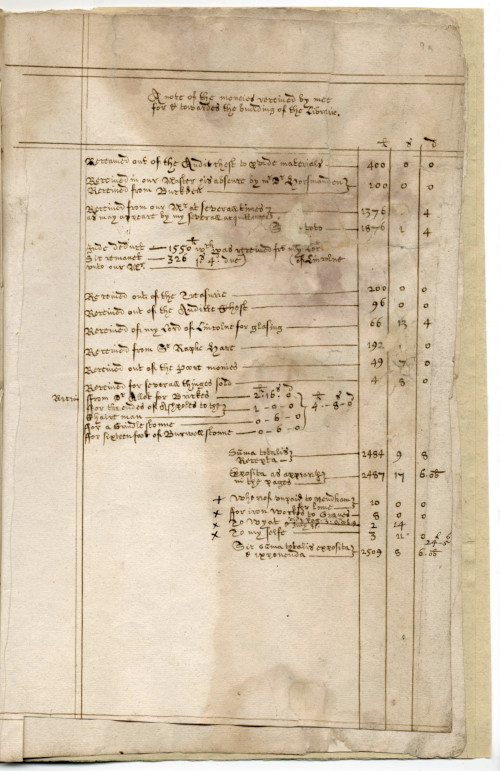 A note of the moneies receiued by mee
for & towardes the building of the Librarie.
li s d
Receaued out of the Audit chest to prouide materials 400 0 0
Receiued in our Masters his absence by mr Dr
Receiued from 200 0 0
Receiued from our Mr at severall times
as may appeare by my severall acquittances 1376 1 4
S toto 1876 1 4
Inde deducte 1550 li wch was receiued fro my Lord
Sic remanet 326 1s 4d due of Lincolne
unto our Mr.
Receiued out of the Treasurie 200 0 0
Receiued out of the Auditt Chest 96 0 0
Receiued of my Lord of Lincolne for glasing 66 13 4
Receiued from Sr Raphe Hare 192 0
Receiued out of the Poore monies 49 7 0
Receiued for severall thinges sold 4 8 0
from Dr Allot for 2-16-0
for the endes of to the 1-0-0 4-8-0
Chaireman
for a Grindlestonne 0-6-0
for sixteen foot of Burwell stonne 0-6-0
Suma totalis
Recepta 2484 9 8
Exposita as appeareth
in the pages 2487 17 6-ob
Whereof unpaid to Needham
for lime 10 0 0
for iron worke to Graues 8 0 0
To Wyat 14
To my selfe 3 11 0
Sic suma totalis exposita
& exponenda 2509 8 6-ob